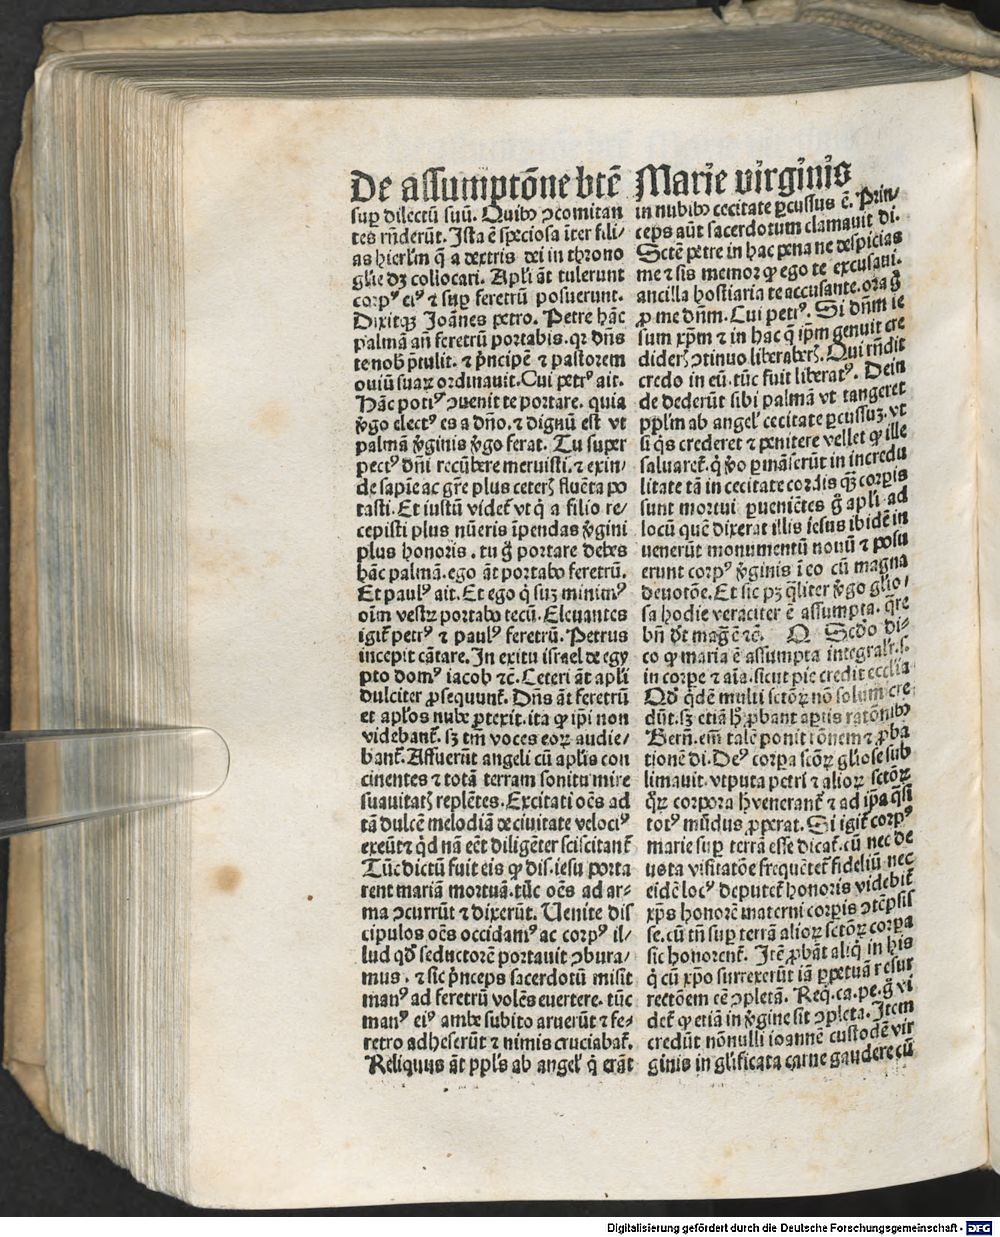 De assumptōne btē Marie virginis
sup dilectū suū. Quibꝰ ↄcomitan
tes rn̄derūt. Ista ē speciosa īter fili/
as hierl'm q̄ a dextris dei in throno
gl'ie dꝫ collocari. Apl'i āt tulerunt
corpꝰ eiꝰ ⁊ sup feretrū posuerunt.
Dixitqꝫ Joānes petro. Petre hāc
palmā an̄ feretrū portabis. qꝛ dn̄s
te nob̄ p̄tulit. ⁊ p̄ncipē ⁊ pastorem
ouiū suaꝝ ordinauit. Cui petrꝰ ait.
Hāc potiꝰ ↄuenit te portare. quia
v̄go electꝰ es a dn̄o. ⁊ dignū est vt
palmā v̄ginis v̄go ferat. Tu super
pectꝰ dn̄i recūbere meruisti. ⁊ exin/
de sapīe ac gr̄e plus ceterꝭ fluēta po
tasti. Et iustū videt᷑ vt q̇ a filio re/
cepisti plus nūeris īpendas v̄gini
plus honoris. tu g̊ portare debes
hāc palmā. ego āt portabo feretrū.
Et paulꝰ ait. Et ego q̇ suꝫ minimꝰ
oīm vestꝝ portabo tecū. Eleuantes
igit᷑ petrꝰ ⁊ paulꝰ feretrū. Petrus
incepit cātare. In exitu israel de egy
pto domꝰ iacob ⁊c̄. Ceteri āt apl'i
dulciter ꝓsequunt᷑. Dn̄s āt feretrū
et apl'os nube ꝑtexit. ita ꝙ ip̄i non
videbant᷑. sꝫ tm̄ voces eoꝝ audie/
bant᷑. Affuerūt angeli cū apl'is con
cinentes ⁊ totā terram sonitu mire
suauitatꝭ replētes. Excitati oēs ad
tā dulcē melodiā de ciuitate velociꝰ
exeūt ⁊ qd̄ nā eēt diligēter sciscitant᷑
Tūc dictū fuit eis ꝙ dis. iesu porta
rent mariā mortuā. tūc oēs ad ar/
ma ↄcurrūt ⁊ dixerūt. Uenite dis
cipulos oēs occidamꝰ ac corpꝰ il/
lud qd̄ seductorē portauit ↄbura/
mus. ⁊ sic p̄nceps sacerdotū misit
manꝰ ad feretrū volēs euertere. tūc
manꝰ eiꝰ ambe subito aruerūt ⁊ fe/
retro adheserūt ⁊ nimis cruciabat᷑.
Reliquus āt ppl's ab angel' q̇ erāt
in nubibꝰ cecitate ꝑcussus ē. Prin/
ceps aūt sacerdotum clamauit di.
Sctē petre in hac pena ne despicias
me ⁊ sis memor ꝙ ego te excusaui.
ancilla hostiaria te accusante. ora g̊
ꝓ me dn̄m. Cui petrꝰ. Si dn̄m ie
sum xp̄m ⁊ in hac q̄ ip̄m genuit cre
diderꝭ ↄtinuo liberaberꝭ. Qui rn̄dit
credo in eū. tūc fuit liberatꝰ. Dein
de dederūt sibi palmā vt tangeret
ppl'm ab angel' cecitate ꝑcussuꝫ. vt
si q̇s crederet ⁊ penitere vellet ꝙ ille
saluaret᷑. q̇ v̊o ꝑmāserūt in incredu
litate tā in cecitate cordis qꝫ corpis
sunt mortui ꝑueniētes g̊ apl'i ad
locū quē dixerat illis iesus ibidē in
uenerūt monumentū nouū ⁊ posu
erunt corpꝰ v̄ginis ī eo cū magna
deuotōe. Et sic pꝫ q̄liter v̄go glio/
sa hodie veraciter ē assumpta. q̄re
bn̄ d̄t mag̅ē ⁊c̄. Q Scd̄o di/
co ꝙ maria ē assumpta integralr̄. s.
in corpe ⁊ aīa. sicut pie credit ecclia
Qd̄ q̇dē multi sctōꝝ nō solum cre
dūt. sꝫ etiā h̄ ꝓbant aptis ratōnibꝰ
Bern̄. em̄ talē ponit rōnem ⁊ ꝓba
tionē di. Deꝰ corpa scōꝝ gl'iose sub
limauit. vtputa petri ⁊ alioꝝ sctōꝝ
q̊ꝝ corpora h̄ venerant᷑ ⁊ ad ip̄a q̄si
totꝰ mūdus ꝓperat. Si igit᷑ corpꝰ
marie sup terrā esse dicat᷑. cū nec de
uota visitatōe frequētet᷑ fideliū nec
eidē locꝰ deputet᷑ honoris videbit᷑
xp̄s honorē materni corpis ↄtēpsis
se. cū tn̄ sup terrā alioꝝ sctōꝝ corpa
sic honorent᷑. Itē ꝓbāt aliq̇ in his
q̇ cū xp̄o surrexerūt iā ꝑpetuā resur
rectōem eē ↄpletā. Req̇. ca. pe. g̊ vi
det᷑ ꝙ etiā in v̄gine sit ↄpleta. Item
credūt nōnulli ioannē custodē vir
ginis in gl'ificata carne gaudere cū
Digitalisierung gefördert durch die Deutsche Forschungsgemeinschaft - DFG